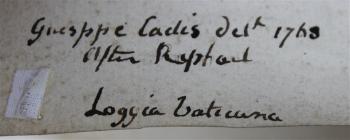 Guiseppe Cadis delt. 1768
After Raphael
Loggia Vaticana